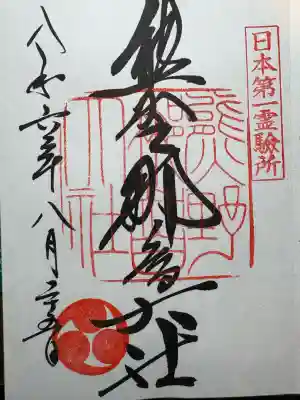 日本第一霊驗所
熊野那智大社
熊野
那智
大社
令和六年八月二十五日